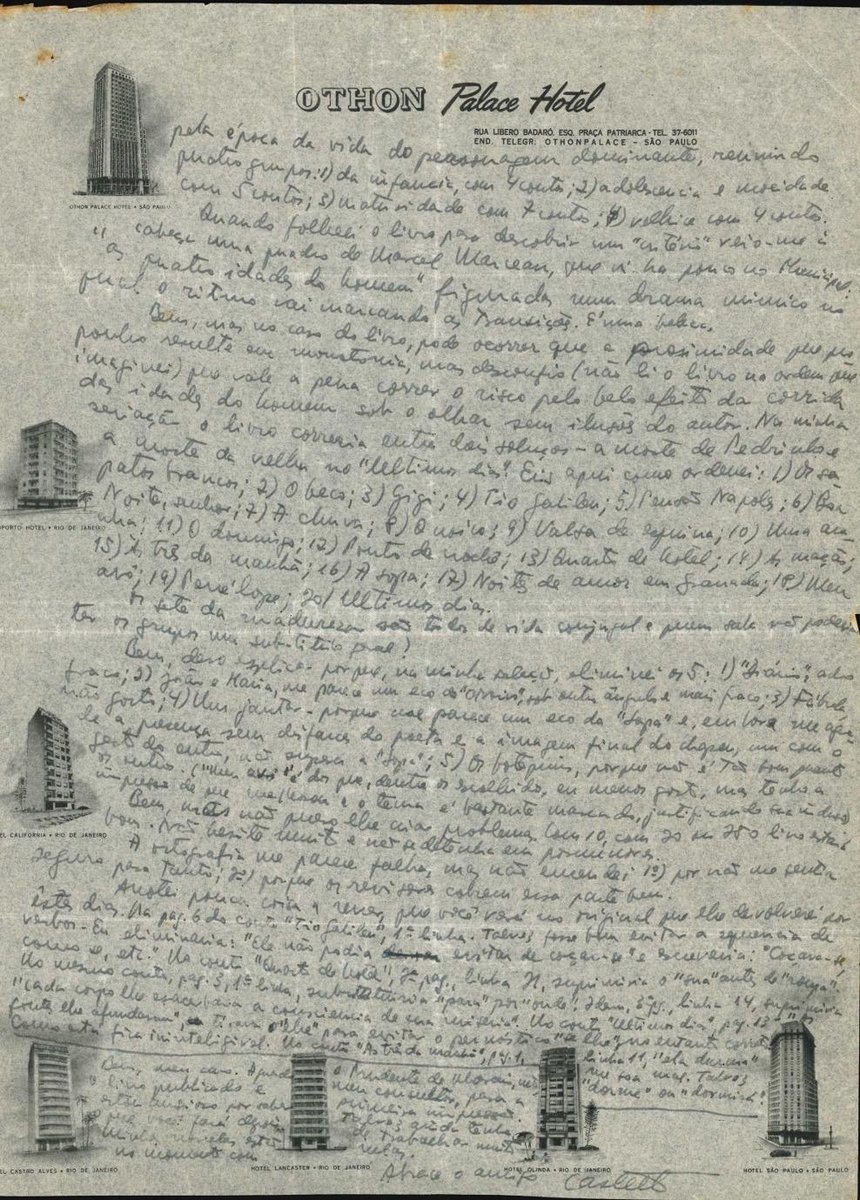 OTHON Palace Hotel
RUA LIBERO BADARÓ, ESQ. PRAÇA PATRIARCA - TEL. 37-6011
END. TELEGR. OTHONPALACE - SÃO PAULO
OTHON PALACE HOTEL • SÃO PAULO
pela época da vida do personagem dominante, reunindo
quatro grupos: 1) da infancia, com 4 contos; 2) adolescencia e mocidade
com 5 contos; 3) maturidade com 7 contos; 4) velhice com 4 contos.
Quando folheei o livro para descobrir um "critério" veio-me à
cabeça um quadro de Marcel Marceau, que vi ha pouco no Municipal:
"as quatro idades do homem" figuradas num drama mimico no
qual o ritmo vai marcando as transições. É uma beleza.
Bem, mas no caso do livro, pode ocorrer que a proximidade que pro
ponho resulte em monotonia, mas desconfio (não li o livro na ordem que
imaginei) que vale a pena correr o risco pelo belo efeito da corrida
das idades do homem sob o olhar sem ilusões do autor. Na minha
seriação o livro correria entre dois soluços - a morte de Pedrinho e
a morte da velha no "Ultimos dias". Eis aqui como ordenei: 1) Os sa
patos brancos; 2) O beco; 3) Gigi; 4) Tio Galileu; 5) Pensão Napoles; 6) Boa
Noite, senhor; 7) A chuva; 8) O noivo; 9) Valsa de esquina; 10) Uma
nha; 11) O domingo; 12) Ponto de crochê; 13) Quarto de hotel; 14) As maçãs;
15) Às três da manhã; 16) A sopa; 17) Noites de amor em Granada; 18) Meu
avô; 19) Penélope; 20) Ultimos dias.
Os sete da madureza são todos de vida conjugal e quem sabe não poderiam
ter os grupos um substitulo geral?
PORTO HOTEL • RIO DE JANEIRO
Bem, devo explicar porque, na minha seleção, eliminei os 5: 1) "Diário", acho
fraco; 2) João e Maria, me parece um eco do sob outro ângulo e mais fraco; 3)
não gosto; 4) Um jantar - porque me parece um eco da "Sopa" e, embora me
a presença sem disfarce do poeta e a imagem final do chapeu, um com o
outro, não supera a "Sopa"; 5) Os botequins, porque não é tão bom quanto
os outros. ("Meu avô" é dos que, dentre os escolhidos, eu menos gosto, mas tenho a
impressão de que e o tema é bastante marcado, justificando sua inclusão)
EL CALIFORNIA • RIO DE JANEIRO
Bem, mas não quero lhe criar problemas. Com 10, com 20 ou 25 o livro estará
bom. Não hesite muito e não se detenha em pormenores.
A ortografia me parece falha, mas não emendei 1º) por não me sentir
seguro para tanto; 2º) porque os revisores cobrem essa parte bem.
Anotei pouca coisa a rever, que você verá no original que lhe devolverei por
êstes dias. Na pag. 6 do conto "Tio Galileu", 1ª linha. Talvez fosse bom evitar a sequencia de
verbos - Eu eliminaria: "Ele não podia evitar de coçar-se" e escreveria: "Coçava-se,
como se, etc." No conto "Quarto de hotel", 2ª pag., linha 21, suprimiria o "sua" antes de
No mesmo conto, pag. 3, 1ª linha, substituiria "para" por "onde". Idem, 5ª pg, linha 14, suprimiria
"cada corpo lhe exacerbava a consciencia de sua miseria". No conto "Ultimos dias", pg. 13
"lhe" para evitar o pernóstico no entanto correto
Como está fica ininteligivel. No conto "Às três da manhã", pg. 1,
linha 11, "ela dormia"
me soa mal. Talvez
"dorme" ou "dormirá".
Bem, meu caro. Aguardo
o livro publicado e
estou ansioso por saber
o que você fará depois.
Minha novela está
no momento com
o Prudente de Moraes, neto
meu consultor, para a
primeira impressão.
Talvez ainda tenha
de trabalhar muito
nela.
Abraço o amigo
Castello
HOTEL CASTRO ALVES • RIO DE JANEIRO
HOTEL LANCASTER • RIO DE JANEIRO
HOTEL OLINDA • RIO DE JANEIRO
HOTEL SÃO PAULO • SÃO PAULO